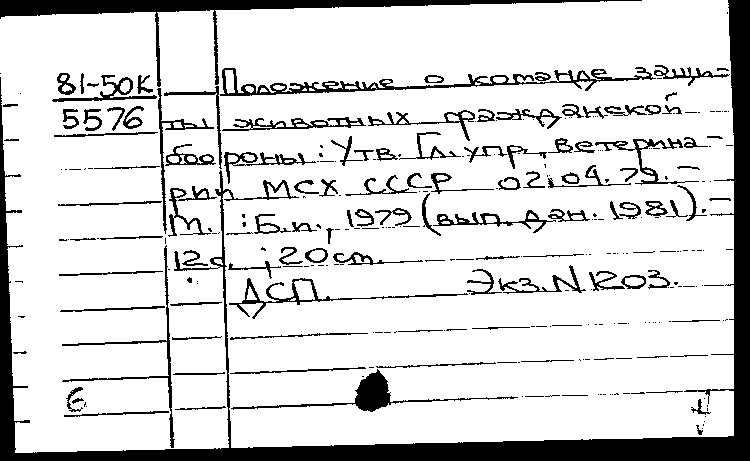 81-50к Положение о команде защи-
5576 ты животных гражданской
обороны: Утв. Гл. упр. ветерина-
рии МСХ СССР 02.04.79. -
М.: Б.и., 1979 (вып. дан. 1981). -
12с. ; 20 см.
ДСП. Экз. N 1203.
6